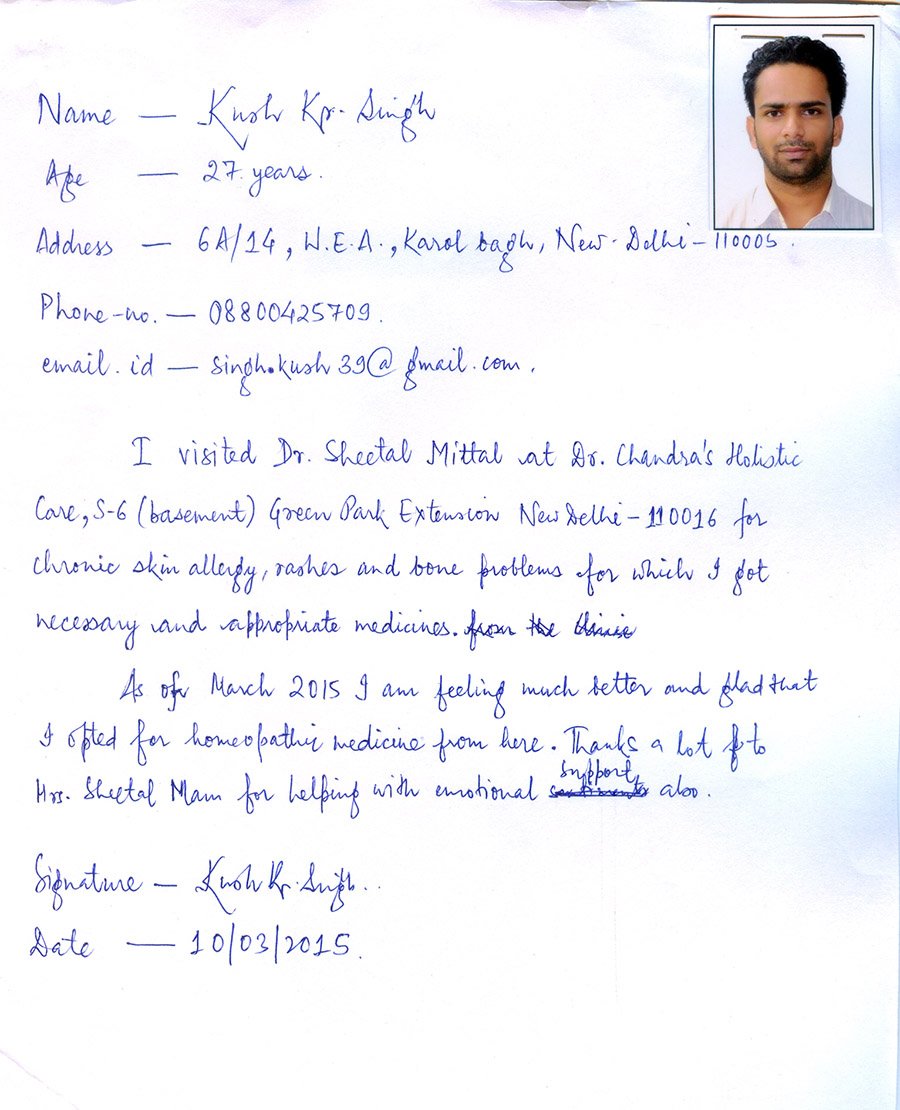 Name — Kush Kr. Singh
Age — 27 years.
Address — 6A/14, W.E.A., Karol bagh, New-Delhi-110005.
Phone-no. — 08800425709.
email.id — singh.kush39@gmail.com.
I visited Dr. Sheetal Mittal at Dr. Chandra's Holistic
Care, S-6 (basement) Green Park Extension New Delhi-110016 for
chronic skin allergy, rashes and bone problems for which I got
necessary and appropriate medicines. from the clinic
As of March 2015 I am feeling much better and glad that
I opted for homeopathic medicine from here. Thanks a lot to
support
Mrs. Sheetal Mam for helping with emotional sentiments also.
Signature — Kush Kr. Singh.
Date — 10/03/2015.